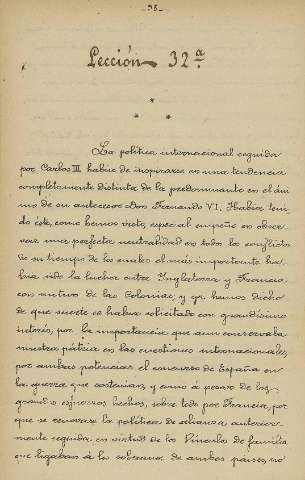 - 98 -
Lección 32ª
La política internacional seguida
por Carlos III había de inspirarse en una tendencia
completamente distinta de la predominante en el áni-
mo de su antecesor Don Fernando VI. Había teni-
do éste, como hemos visto, especial empeño en obser-
var una perfecta neutralidad en todos los conflictos
de su tiempo de los cuales el más importante ha-
bía sido la lucha entre Inglaterra y Francia
con motivo de las Colonias; y ya hemos dicho
de que suerte se había solicitado con grandísimo
interés, por la importancia que aun conservaba
nuestra pátria en las cuestiones internacionales,
por ambas potencias el concurso de España en
la guerra que sostenían, y como á pesar de los
grandes esfuerzos hechos, sobre todo por Francia, por
que se renovase la política de alianza anterior-
mente seguida en virtud de los vínculos de familia
que ligaban á los soberanos de ambos países, no